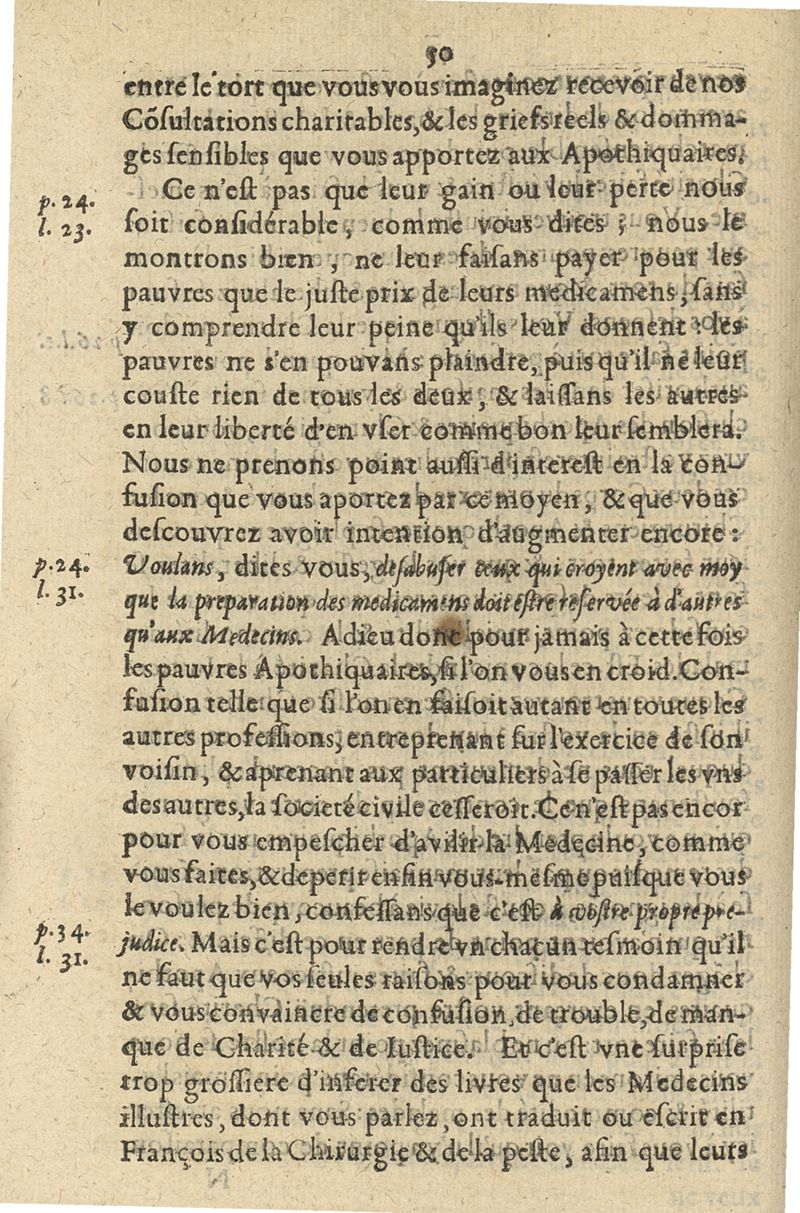 50
entre le tort que vous vous imaginez recevoir de nos
Cõsultations charitables, & les griefs réels & domma-
ges sensibles que vous apportez aux Apothiquaires.
Ce n'est pas que leur gain ou leur perte nous
p. 24.
l. 23.
soit considérable, comme vous dites; nous le
montrons bien, ne leur faisans payer pour les
pauvres que le juste prix de leurs medicamens, sans
y comprendre leur peine qu'ils leur donnent: les
pauvres ne s'en pouvans plaindre, puis qu'il ne leur
couste rien de tous les deux, & laissans les autres
en leur liberté d'en vser comme bon leur semblera.
Nous ne prenons point aussi d'interest en la con-
fusion que vous aportez par ce moyen, & que vous
descouvrez avoir intention d'augmenter encore:
p. 24.
l. 31.
Voulans, dites vous, desabuser ceux qui croyent avec moy
que la preparation des medicamens doit estre reservée à d'autres
qu'aux Medecins. Adieu donc pour jamais à cette fois
les pauvres Apothiquaires, si l'on vous en croid. Con-
fusion telle que si l'on en faisoit autant en toutes les
autres professions, entreprenant sur l'exercice de son
voisin, & aprenant aux particuliers à se passer les vns
des autres, la societé civile cesseroit. Ce n'est pas encor
pour vous empescher d'avilir la Medecine, comme
vous faites, & de perir enfin vous-mesme puisque vous
le voulez bien, confessans que c'est à vostre propre pre-
p. 34.
l. 31.
judice. Mais c'est pour rendre vn chacun tesmoin qu'il
ne faut que vos seules raisons pour vous condamner
& vous convaincre de confusion, de trouble, de man-
que de Charité & de Iustice. Et c'est vne surprise
trop grossiere d'inferer des livres que les Medecins
illustres, dont vous parlez, ont traduit ou escrit en
François de la Chirurgie & de la peste, afin que leurs